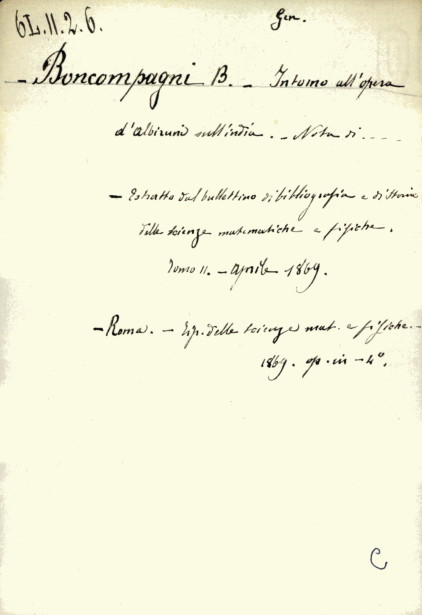 6L.11.2.6.
Gen.
- Boncompagni B. - Intorno all'opera
d'Albiruni sull'india. - Nota di ----
- Estratto dal bullettino di bibliografia e di storia
delle scienze matematiche e fisiche.
Tomo II. - aprile 1869.
- Roma. - Tip. delle scienze mat. e fisiche. -
1869. op. in - 4°.
C